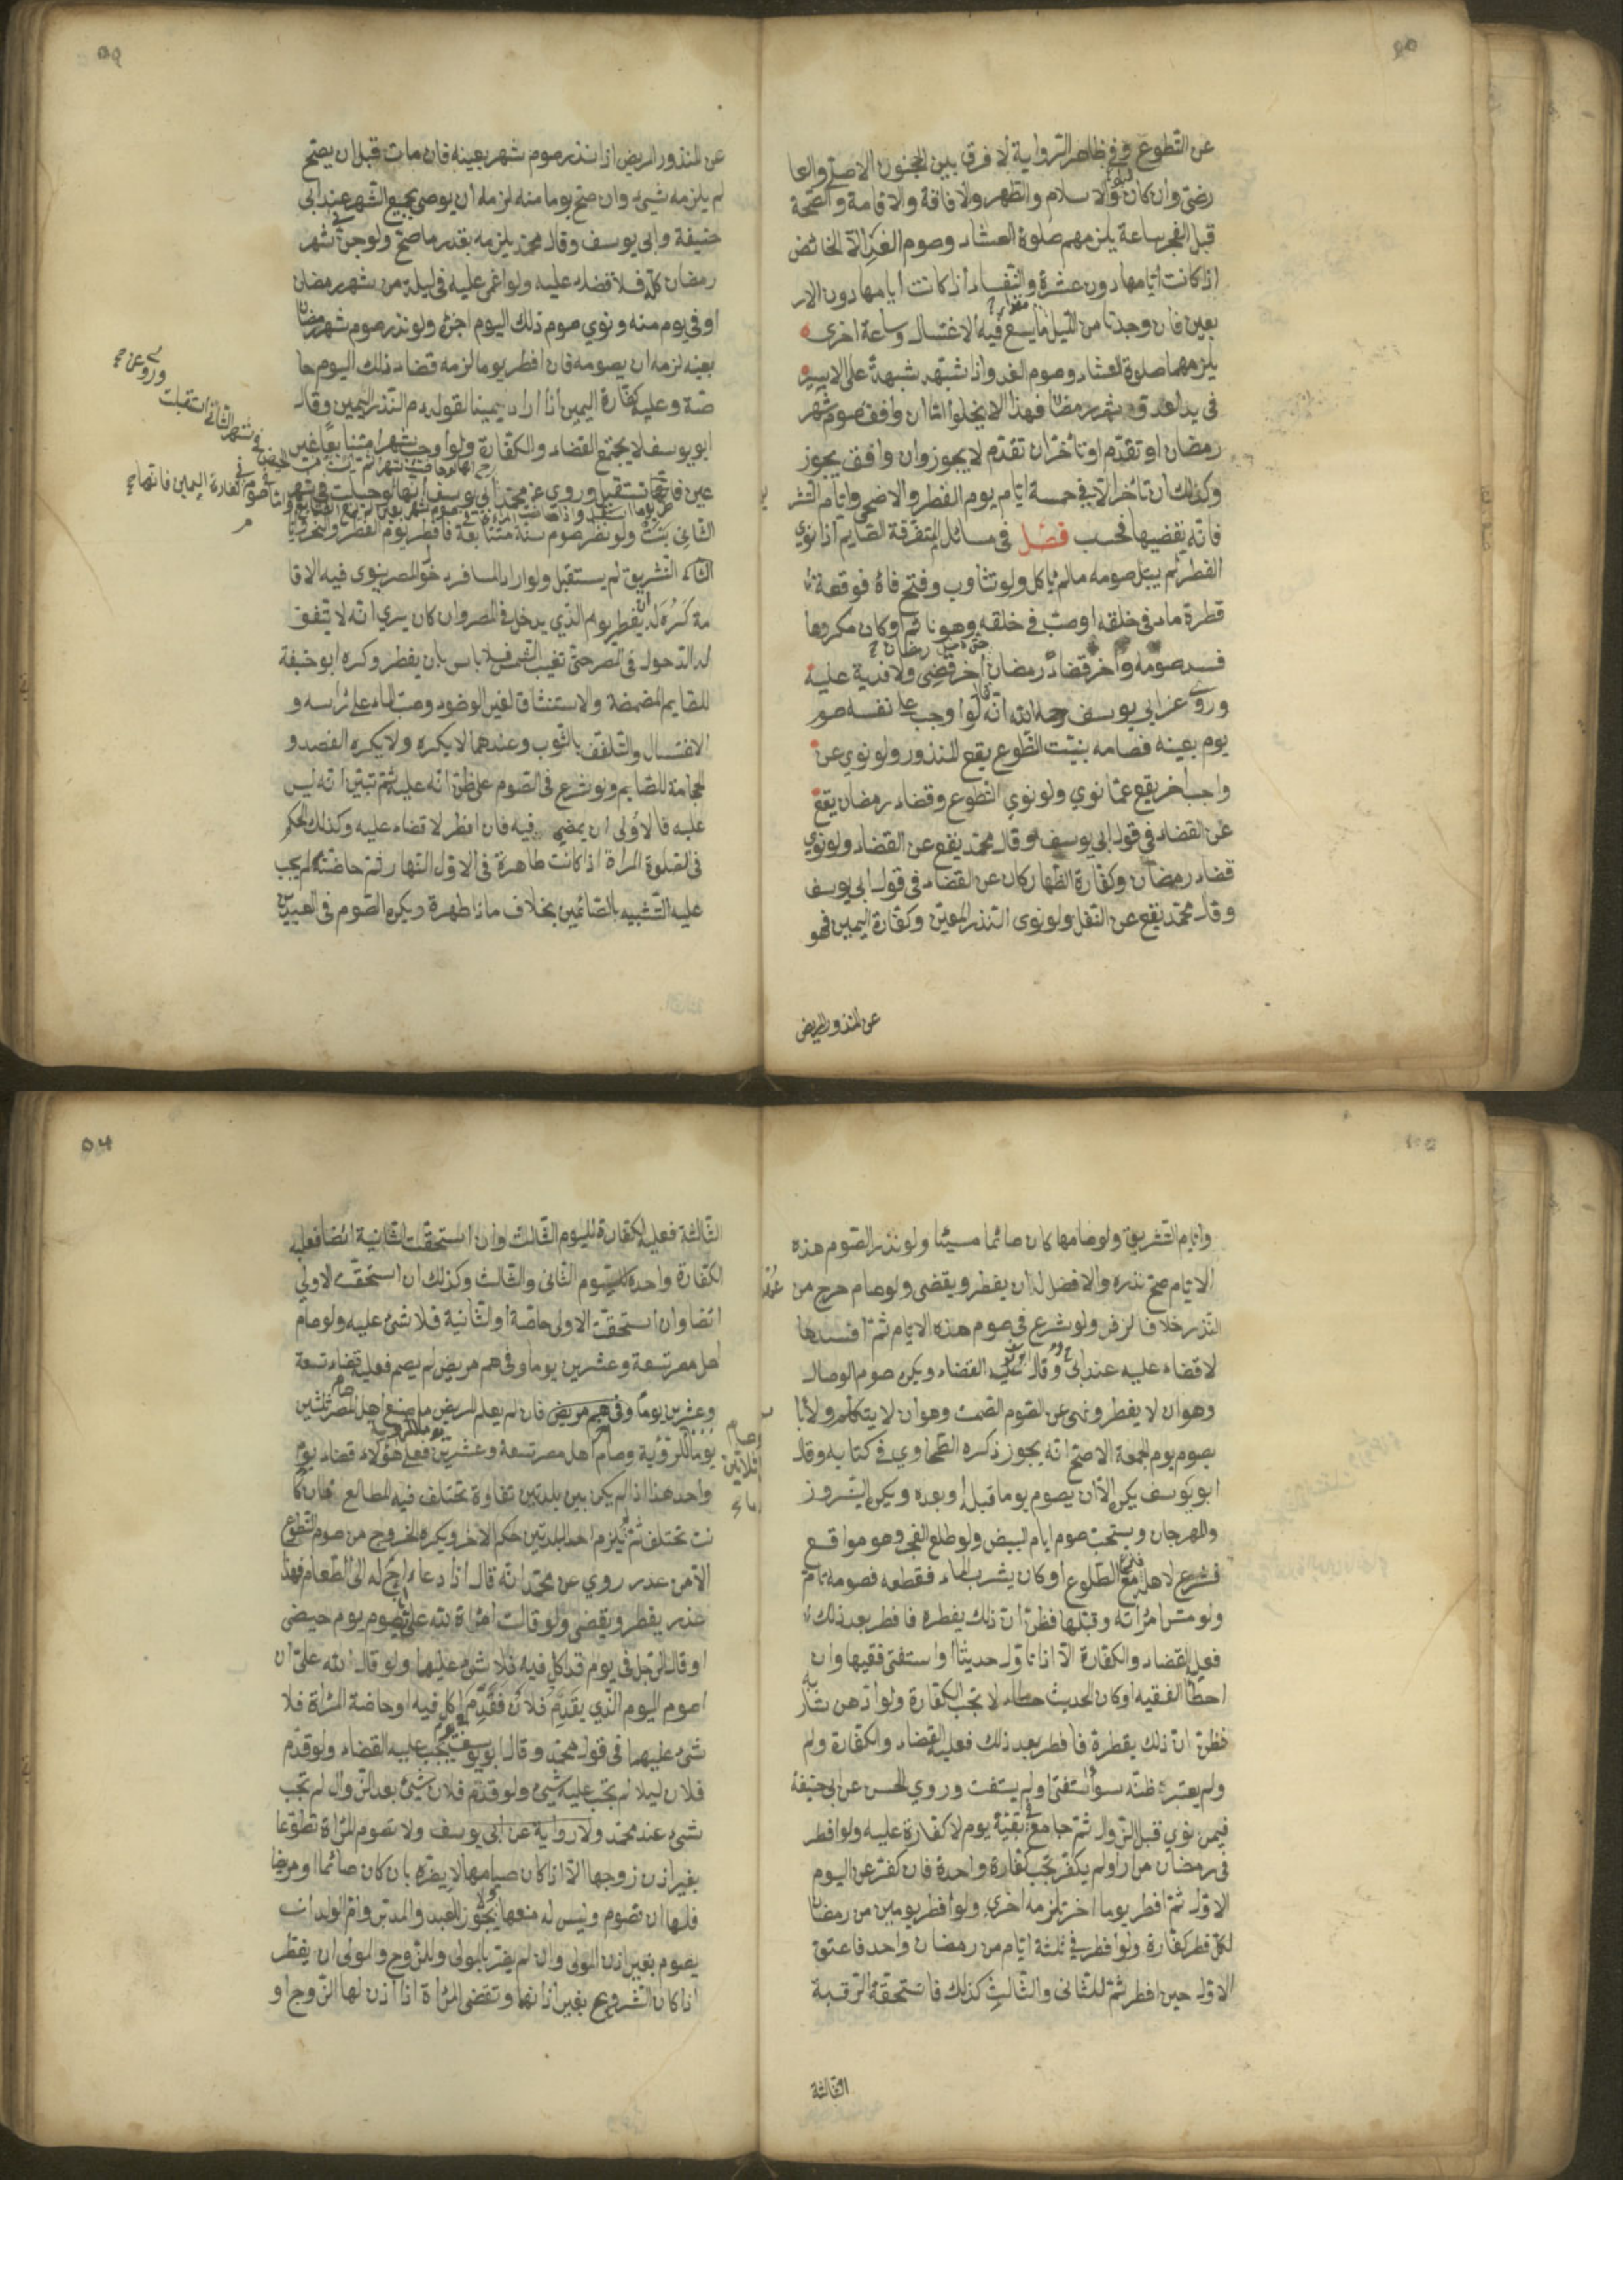 عن التطوع وفي ظاهر الرواية لا فرق بين الجنون الاصلي والعا
رضي وان كان الاسلام والطهر والافاقة والاقامة والصحة
قبل الفجر ساعة يلزمهم صلوة العشاء وصوم الغد الا الحائض
اذا كانت ايامها دون عشرة والنفساء اذا كانت ايامها دون الار
بعين فان وجدتا من الليل ما يسع فيه الاغتسال وساعة اخرى
يلزمهما صلوة العشاء وصوم الغد واذا شبهة على الاسير
في يد العدو شهر رمضان فهذا لا يخلوا اما ان وافق صوم شهر
رمضان او تقدم او تأخر ان تقدم لا يجوز وان وافق يجوز
وكذلك ان تأخر الا في خمسة ايام يوم الفطر والاضحى وايام التشر
فانه يقضيها فحسب فصل في مسائل المتفرقة الصايم اذا نوي
الفطر لم يبطل صومه ما لم يأكل ولو تثاوب وفتح فاه فوقعة
قطرة ماء في حلقه او صب في حلقه وهو نائم او كان مكروها
فسد صومه واخر قضاء رمضان اخر قضي ولا فدية عليه
وروي عن ابي يوسف رحمه الله انه لو اوجب على نفسه صوم
يوم بعينه فصامه بنيت التطوع يقع للمنذور ولو نوي عن
واجب اخر يقع عما نوي ولو نوي التطوع وقضاء رمضان يقع
عن القضاء في قول ابي يوسف وقال محمد يقع عن القضاء ولو نوي
قضاء رمضان وكفارة الظهار كان عن القضاء في قول ابي يوسف
وقال محمد يقع عن النفل ولو نوى النذر المعين وكفارة اليمين فهو
عن المنذور المريض
عن المنذور المريض اذا نذر صوم شهر بعينه فان مات قبل ان يصح
لم يلزمه شيء وان صح يوما منه لزمه ان يوصي بجميع الشهر عند ابي
حنيفة وابي يوسف وقال محمد يلزمه بقدر ما صح ولو جن في شهر
رمضان كله فلا قضاء عليه ولو اغمي عليه في ليلة من شهر رمضان
او في يوم منه ونوي صوم ذلك اليوم اجزئ ولو نذر صوم شهر رمضان
بعينه لزمه ان يصومه فان افطر يوما لزمه قضاء ذلك اليوم خا
صة وعليه كفارة اليمين اذا اراد يمينا لقوله دم النذر اليمين وقال
ابو يوسف لا يجتمع القضاء والكفارة ولو اوجب شهرا متتابعا غير
عين فانها تستقبل وروي عن محمد ابي يوسف انها لو حبلت في شهر
الثاني بنت ولو نظر صوم سنة متتابعة فافطر يوم الفطر والنحر وايا
التشريق لم يستقبل ولو اراد المسافر دخول المصر ينوي فيه الاقا
مة كره له ان يفطر يوم الذي يدخل في المصر وان كان يري انه لا يتفق
له الدخول في المصر حتى تغيب الشمس فلا باس بان يفطر وكره ابو حنيفة
للصايم المضمضة والاستنشاق لغير الوضوء وصب الماء على رأسه و
الاغتسال والتلفف بالثوب وعندهما لا يكره ولا يكره الفصد و
الحجامة للصايم ولو شرع في الصوم على ظن انه عليه ثم تبين انه ليس
عليه فالاولى ان يمضي فيه فان افطر لا قضاء عليه وكذلك الحكم
في الصلوة المراة اذا كانت طاهرة في الاول النهار فثم حاضت لم يجب
عليه التشبيه بالصائمين بخلاف ما ذا طهرة ويكره الصوم في العيدين
وايام التشريق ولو صامها كان صائما مسيئا ولو نذر الصوم هذه
الايام صح نذره والافضل له ان يفطر ويقضي ولو صام خرج من
النذر خلافا لزفر ولو شرع في صوم هذه الايام ثم افسدها
لا قضاء عليه عند ابي وقال عليه القضاء ويكره صوم الوصال
وهو ان لا يفطر ونهى عن الصوم الصمت وهو ان لا يتكلم ولا بأ
بصوم يوم الجمعة الاصح انه يجوز ذكره الطحاوي في كتابه وقال
ابو يوسف يكره الا ان يصوم يوما قبله او بعده ويكره النيروز
والمهرجان ويستحب صوم ايام البيض ولو طلع الفجر وهو مواقع
فنزع لاهله مع الطلوع او كان يشرب الماء فقطعه فصومه تام
ولو مس امرأته وقبلها فظن ان ذلك يفطره فافطر بعد ذلك
فعليه القضاء والكفارة الا اذا تاول حديثا او استفتى فقيها وان
اخطأ الفقيه او كان الحديث خطاء لا تجب الكفارة ولو ادهن شاربه
فظن ان ذلك يفطره فافطر بعد ذلك فعليه القضاء والكفارة ولم
ولم يعتبر ظنه سواء استفتى او لم يستفت وروي الحسن عن ابي حنيفة
فيمن نوي قبل الزوال ثم جامع في بقية يوم لا كفارة عليه ولو افطر
في رمضان مرارا ولم يكفر تجب كفارة واحدة فان كفر عن اليوم
الاول ثم افطر يوما اخر تلزمه اخري ولو افطر يومين من رمضان
لكل فطر كفارة ولو افطر في ثلثة ايام من رمضان واحد فاعتق
الاول حين افطر ثم للثاني والثالث كذلك فاستحقة الرقبة
الثالثة
الثالثة فعليه الكفارة لليوم الثالث وان استحقت الثانية ايضا فعليه
الكفارة واحدة لليوم الثاني والثالث وكذلك ان استحقت الاولى
ايضا وان استحقت الاولى خاصة او الثانية فلا شئ عليه ولو صام
اهل مصر تسعة وعشرين يوما وفي هم مريض لم يصم فعليه قضاء تسعة
وعشرين يوما وفي هم مريض فان لم يعلم المريض ما صنع اهل المصر صام ثلثين
يوما للرؤية وصام اهل مصر تسعة وعشرين فعلى هؤلاء قضاء يوم
واحد هذا اذا لم يكن بين بلدتين تفاوة تختلف فيه المطالع فان كا
نت تختلف لم يلزم احد البلدتين حكم الاخر ويكره الخروج من صوم التطوع
الا من عذر روي عن محمد انه قال اذا دعاه اخ له الى الطعام فهذا
عذر يفطر ويقضي ولو قالت امرأة لله علي صوم يوم حيضي
او قال الرجل في يوم قد اكل فيه فلا شئ عليها ولو قال لله علي ان
اصوم اليوم الذي يقدم فلان فقدم اكل فيه او حاضة المرأة فلا
شئ عليهما في قول محمد وقال ابو يوسف يجب عليه القضاء ولو قدم
فلان ليلا لم يجب عليه شئ ولو قدم فلان شئ بعد الزوال لم تجب
شئ عند محمد ولا رواية عن ابي يوسف ولا تصوم المرأة تطوعا
بغير اذن زوجها الا اذا كان صيامها لا يضره بان كان صائما او مريضا
فلها ان تصوم وليس له منعها ولا يجوز للعبد والمدبر وام الولد ان
يصوم بغير اذن المولى وان لم يضر بالمولى وللزوج والمولى ان يفطر
اذا كان الشروع بغير اذنها وتقضي المرأة اذا اذن لها الزوج او